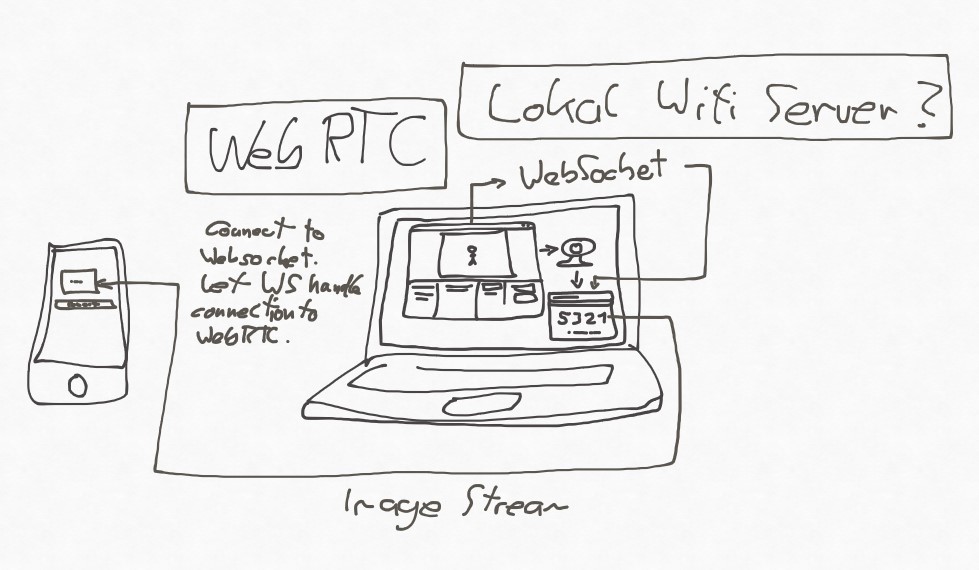 Lokal Wifi Server?
WebRTC
WebSocket
Connect to
Websocket.
Let WS handle
connection to
WebRTC.
5321
Image Stream